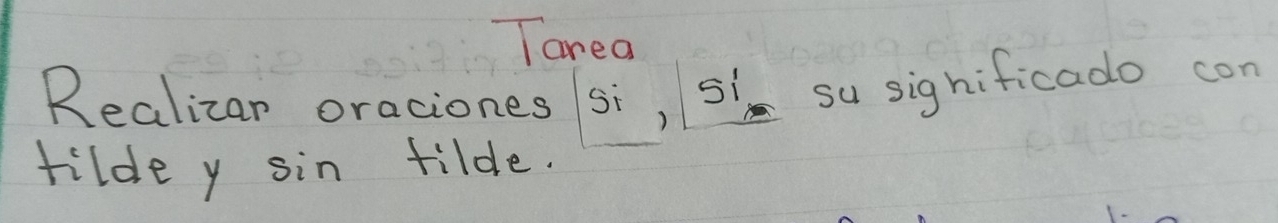 Tarea
Realizar oraciones si, sí su significado con
tilde y sin tilde.